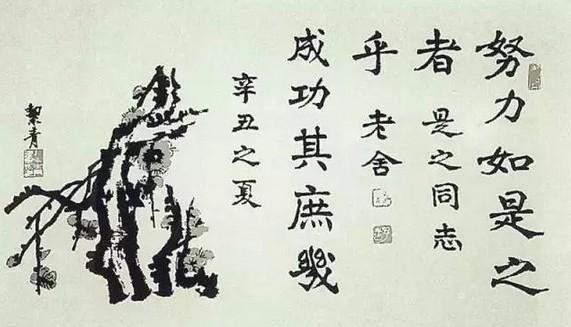 努力如是之
者 是之同志
乎 老舍
成功其庶幾
辛丑之夏
絜青